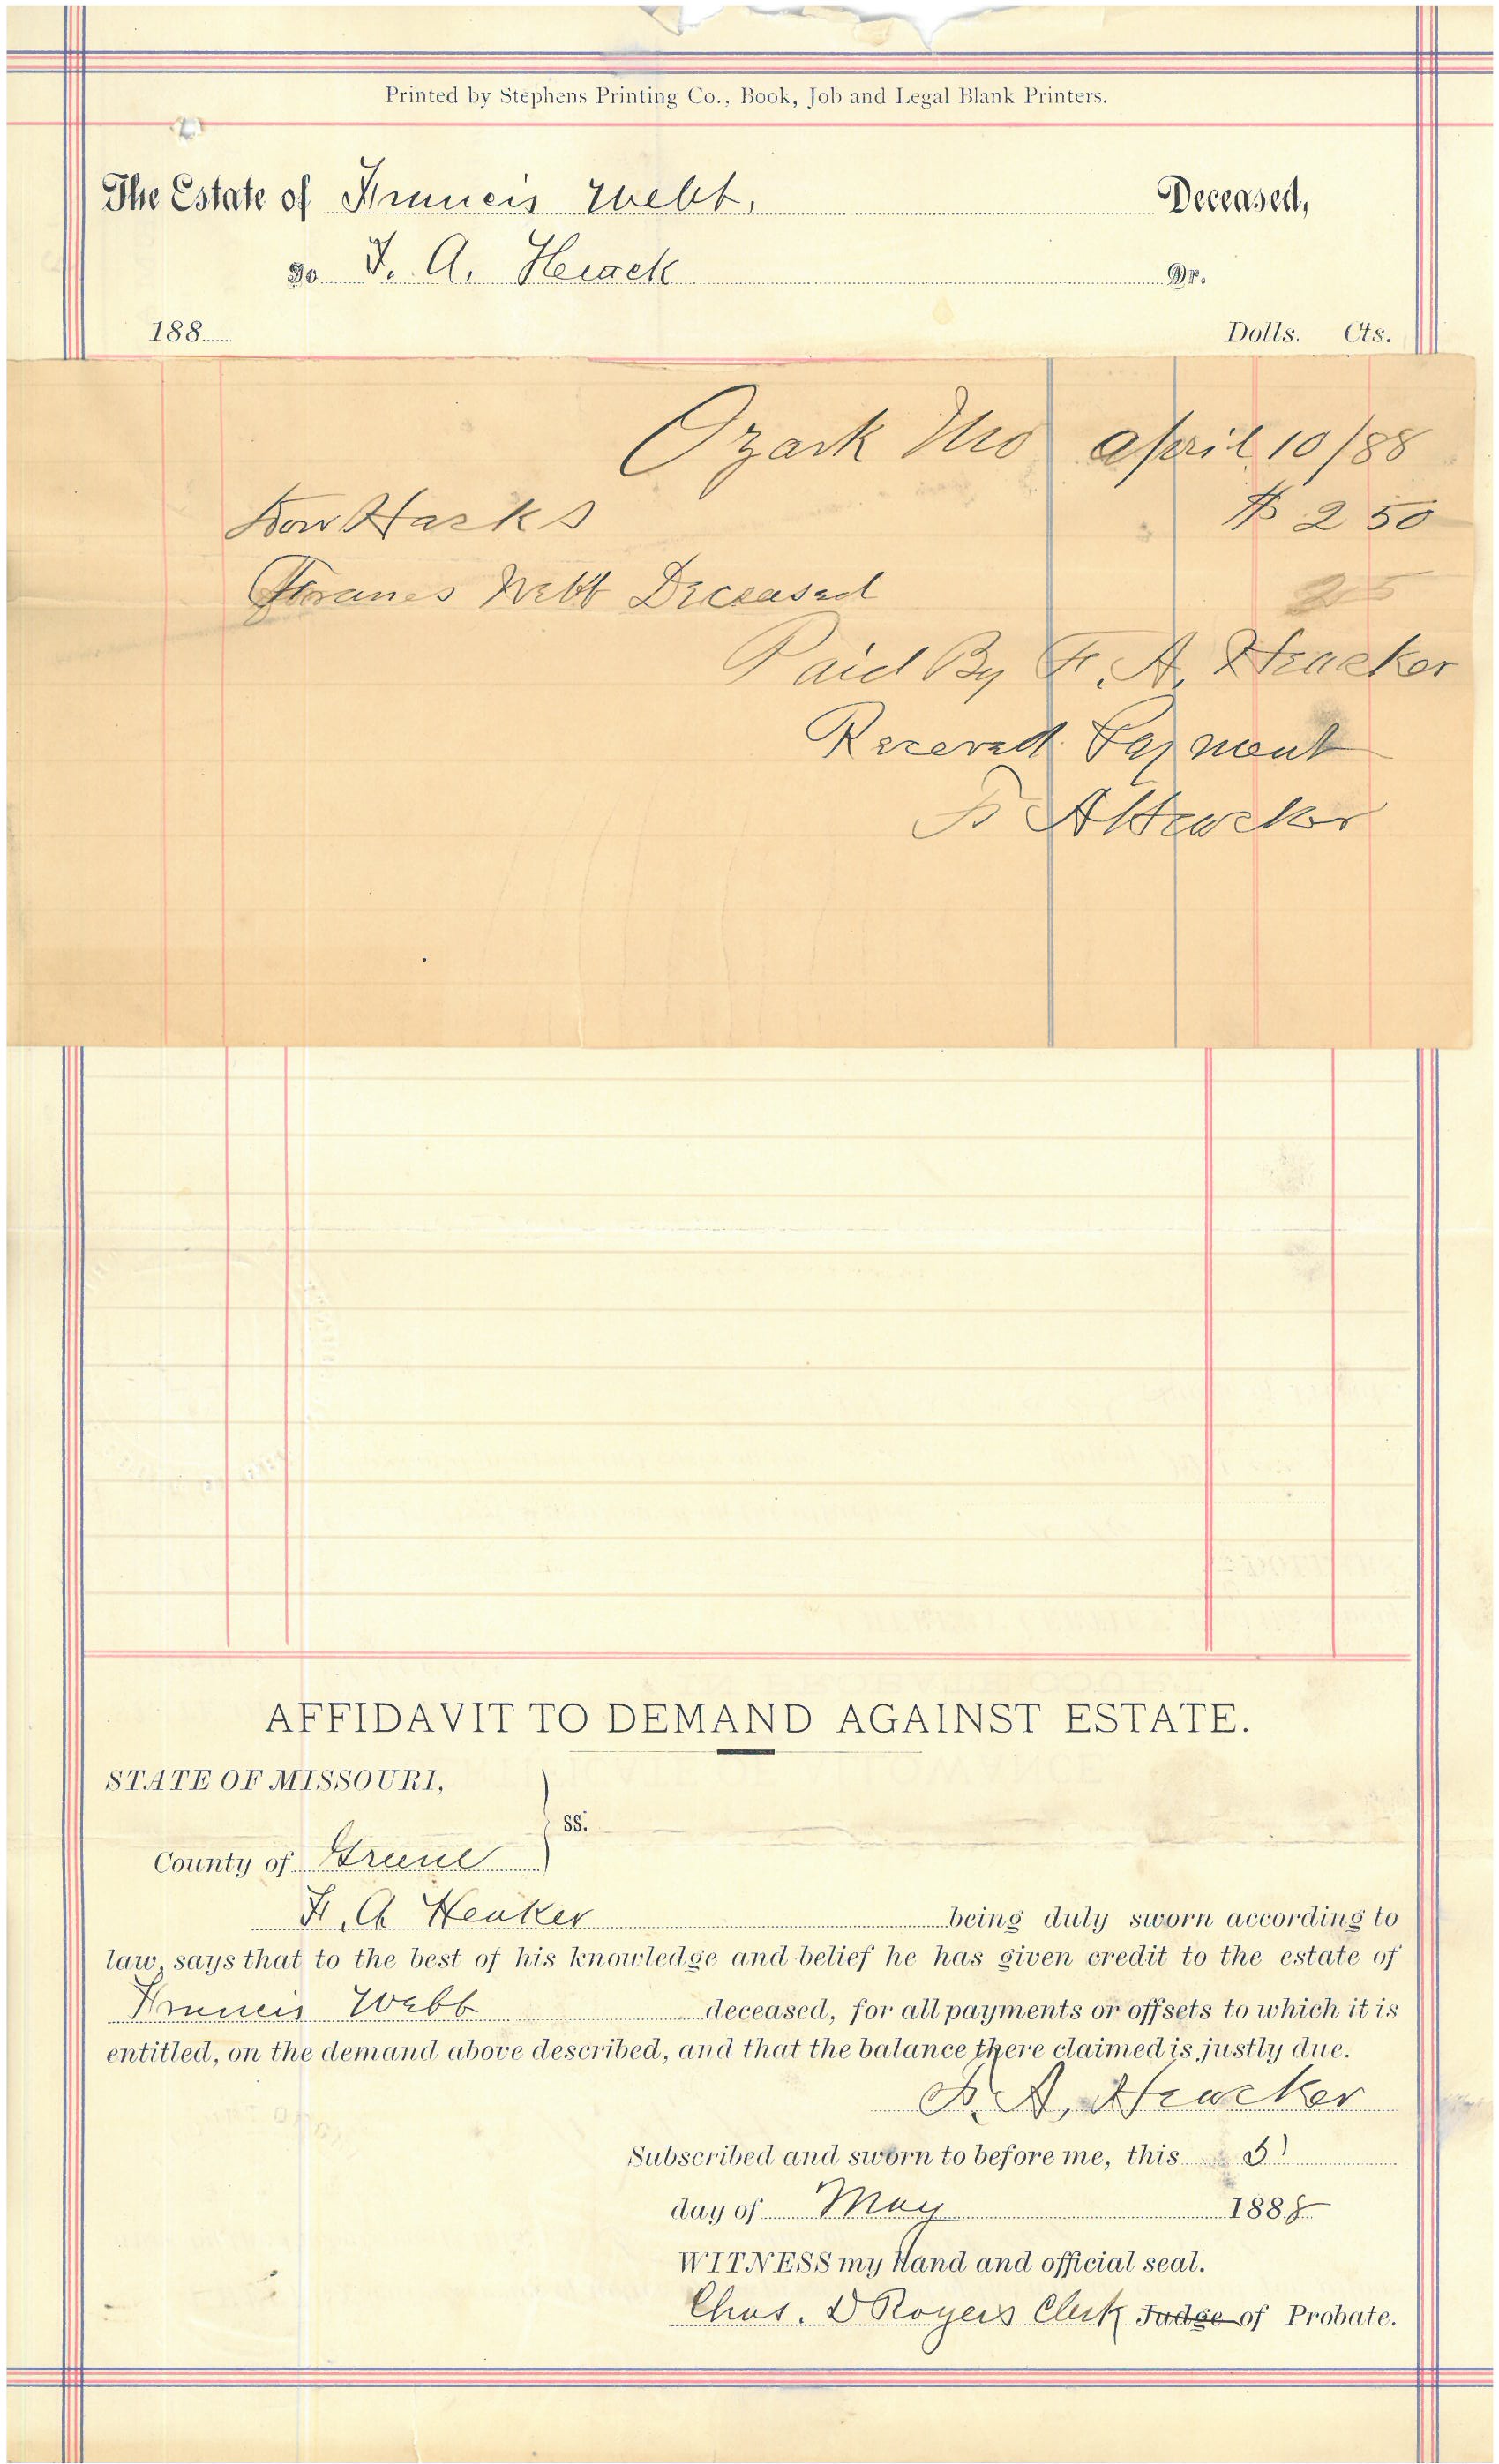 Printed by Stephens Printing Co., Book, Job and Legal Blank Printers.
The Estate of Francis Webb, Deceased,
To F. A. Heack Dr.
188 Dolls. Cts.
Ozark Mo april 10/88
$ 2 50
Franes Webb Deceased
25
Paid By F. A. Heacker
Receved Payment
F A Heacker
AFFIDAVIT TO DEMAND AGAINST ESTATE.
STATE OF MISSOURI,
ss.
County of Greene
F. A Heaker being duly sworn according to
law, says that to the best of his knowledge and belief he has given credit to the estate of
Francis Webb deceased, for all payments or offsets to which it is
entitled, on the demand above described, and that the balance there claimed is justly due.
F. A. Heacker
Subscribed and sworn to before me, this
day of May 1888
WITNESS my Hand and official seal.
Chas. D Rogers Clerk Judge of Probate.